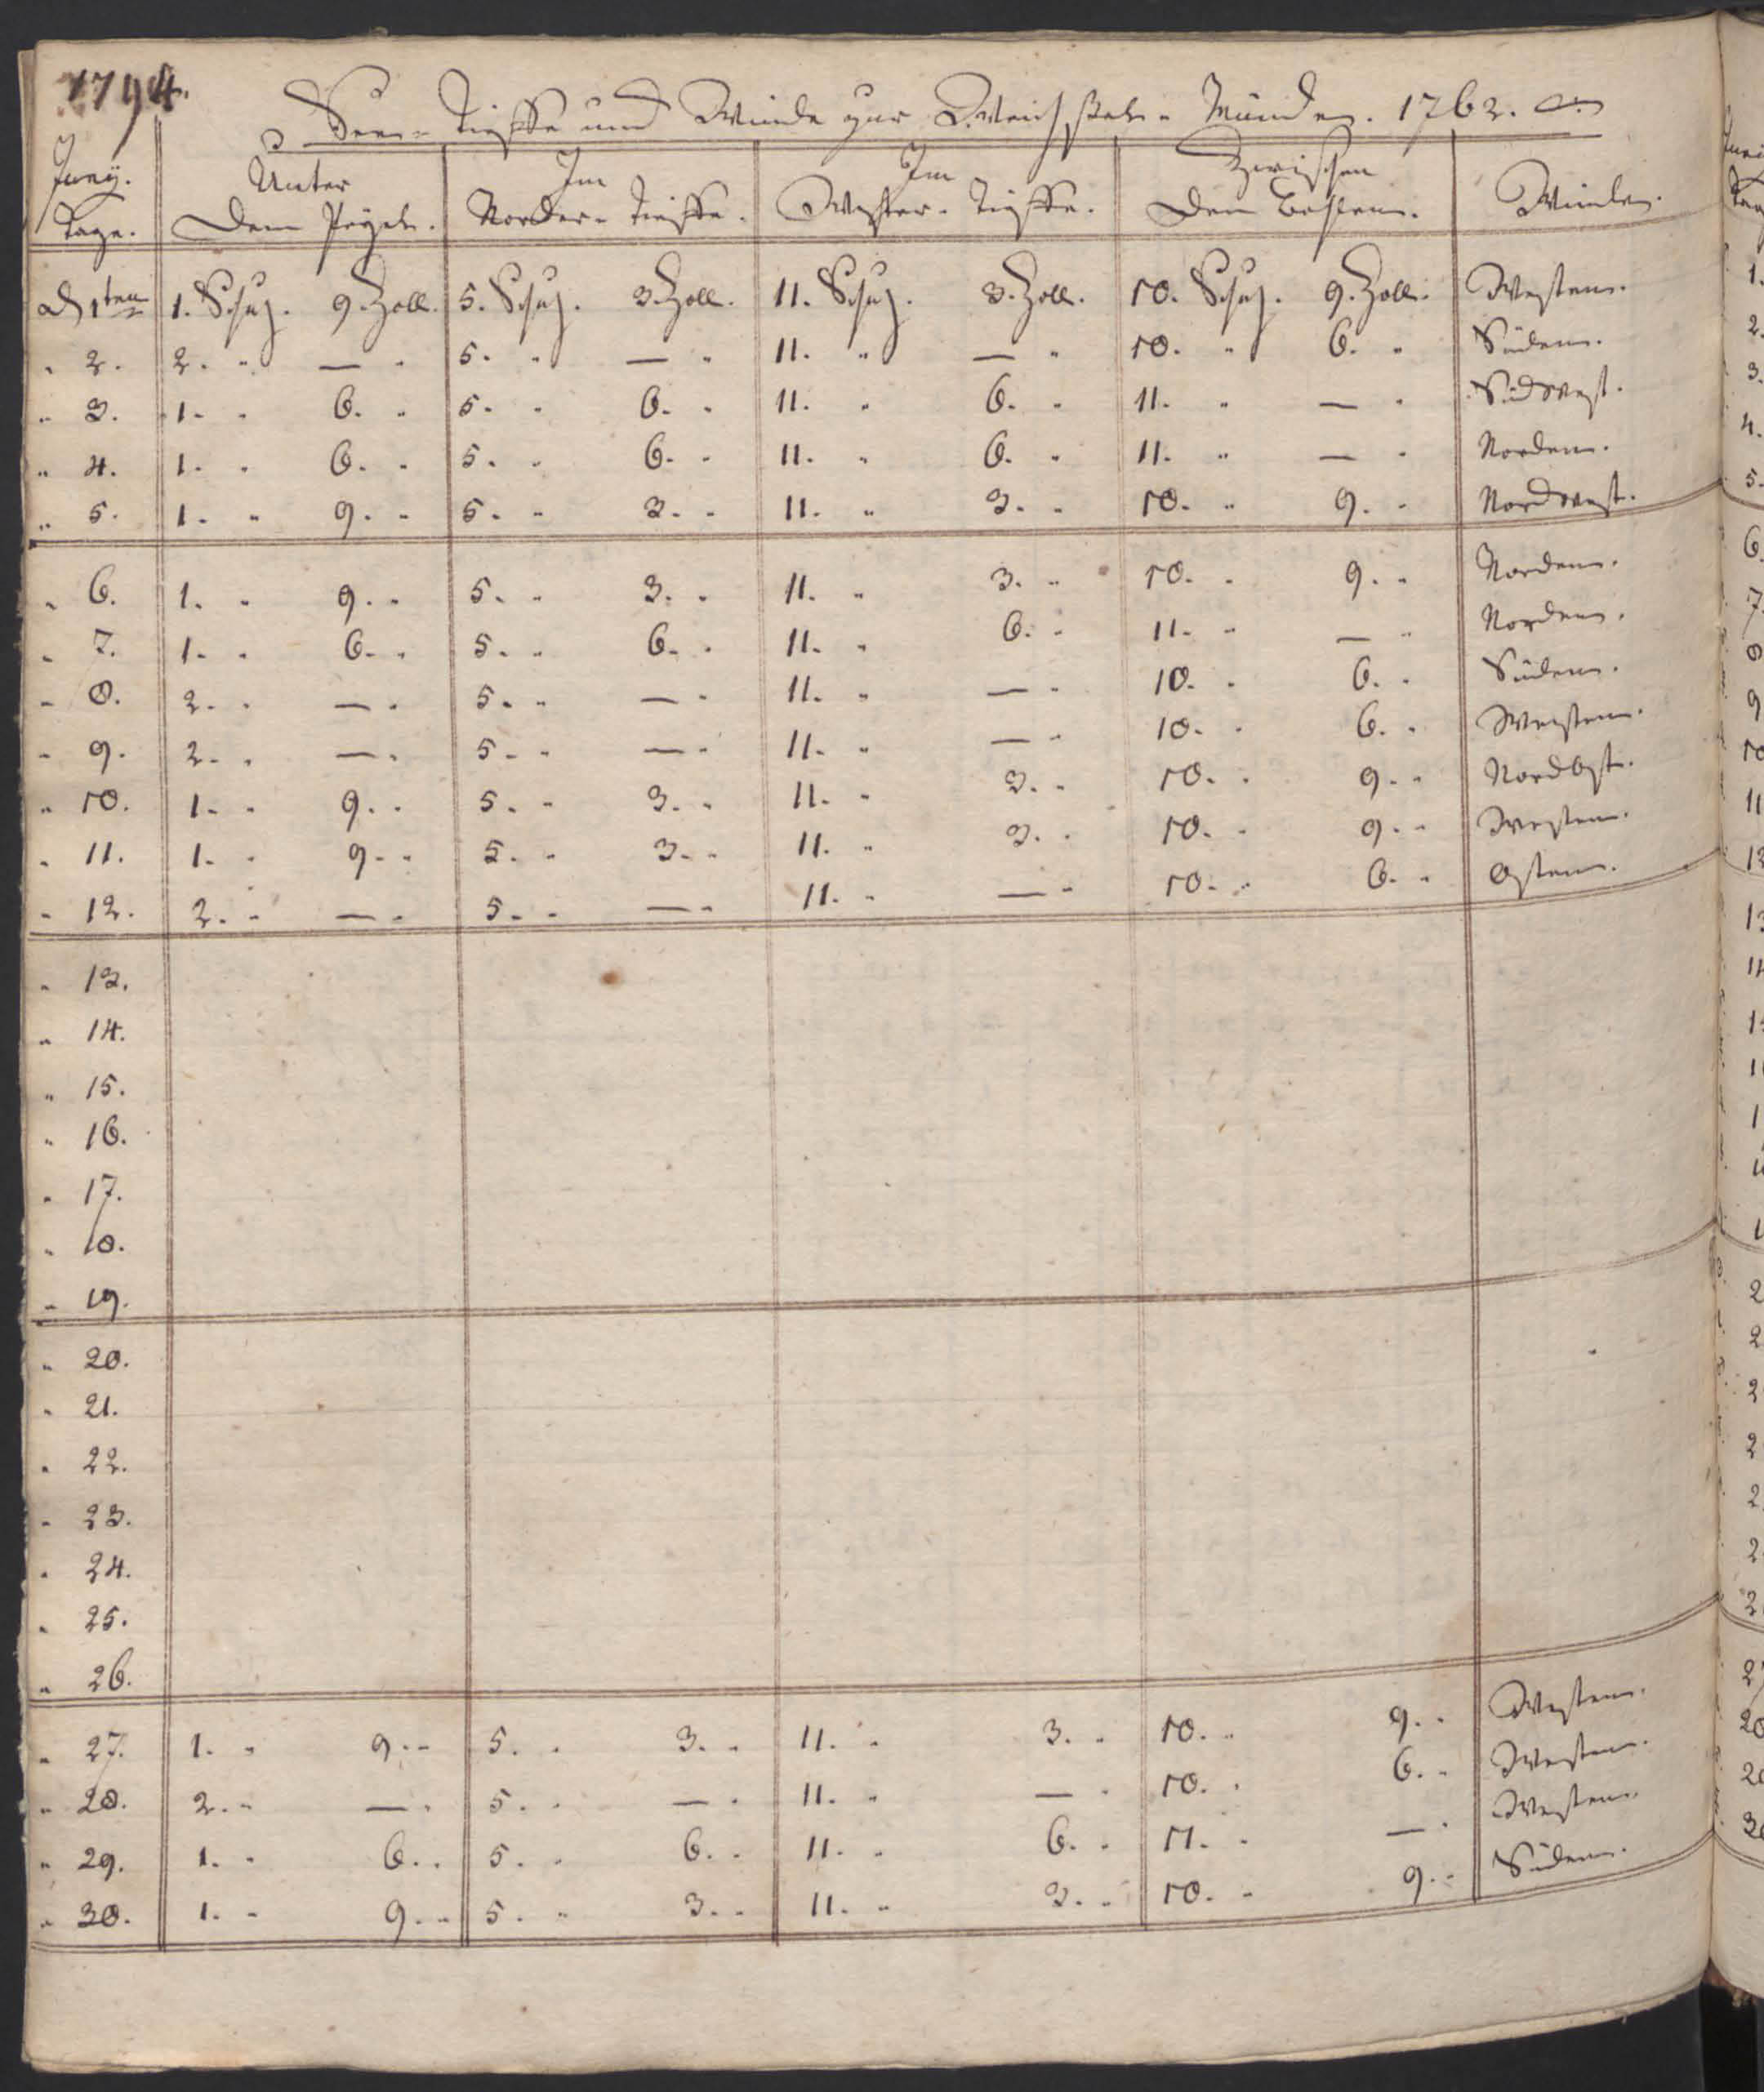 1794.
Seen-Tieffe und Winde zur Weichsel-Münden. 1762.
Juny. Unter Im Im Zwischen
Tage. Dem Pegel. Norder-Tieffe. Wester-Tieffe. Den Winden.
d 1ten 1. Schuh. 9. Zoll. 5. Schuh. 3. Zoll. 11. Schuh. 3. Zoll. 10. Schuh. 9. Zoll. Westen.
" 2. 2. " — " 5. " — " 11. " — " 10. " 6. " Süden.
" 3. 1. " 6. " 5. " 6. " 11. " 6. " 11. " — " Südwest.
" 4. 1. " 6. " 5. " 6. " 11. " 6. " 11. " — " Norden.
" 5. 1. " 9. " 5. " 3. " 11. " 3. " 10. " 9. " Nordwest.
" 6. 1. " 9. " 5. " 3. " 11. " 3. " 10. " 9. " Norden.
" 7. 1. " 6. " 5. " 6. " 11. " 6. " 11. " — " Norden.
" 8. 2. " — " 5. " — " 11. " — " 10. " 6. " Süden.
" 9. 2. " — " 5. " — " 11. " — " 10. " 6. " Westen.
" 10. 1. " 9. " 5. " 3. " 11. " 3. " 10. " 9. " Nordost.
" 11. 1. " 9. " 5. " 3. " 11. " 3. " 10. " 9. " Westen.
" 12. 2. " — " 5. " — " 11. " — " 10. " 6. " Osten.
" 13.
" 14.
" 15.
" 16.
" 17.
" 18.
" 19.
" 20.
" 21.
" 22.
" 23.
" 24.
" 25.
" 26.
" 27. 1. " 9. " 5. " 3. " 11. " 3. " 10. " 9. " Westen.
" 28. 2. " — " 5. " — " 11. " — " 10. " 6. " Westen.
" 29. 1. " 6. " 5. " 6. " 11. " 6. " 11. " — " Westen.
" 30. 1. " 9. " 5. " 3. " 11. " 3. " 10. " 9. " Süden.